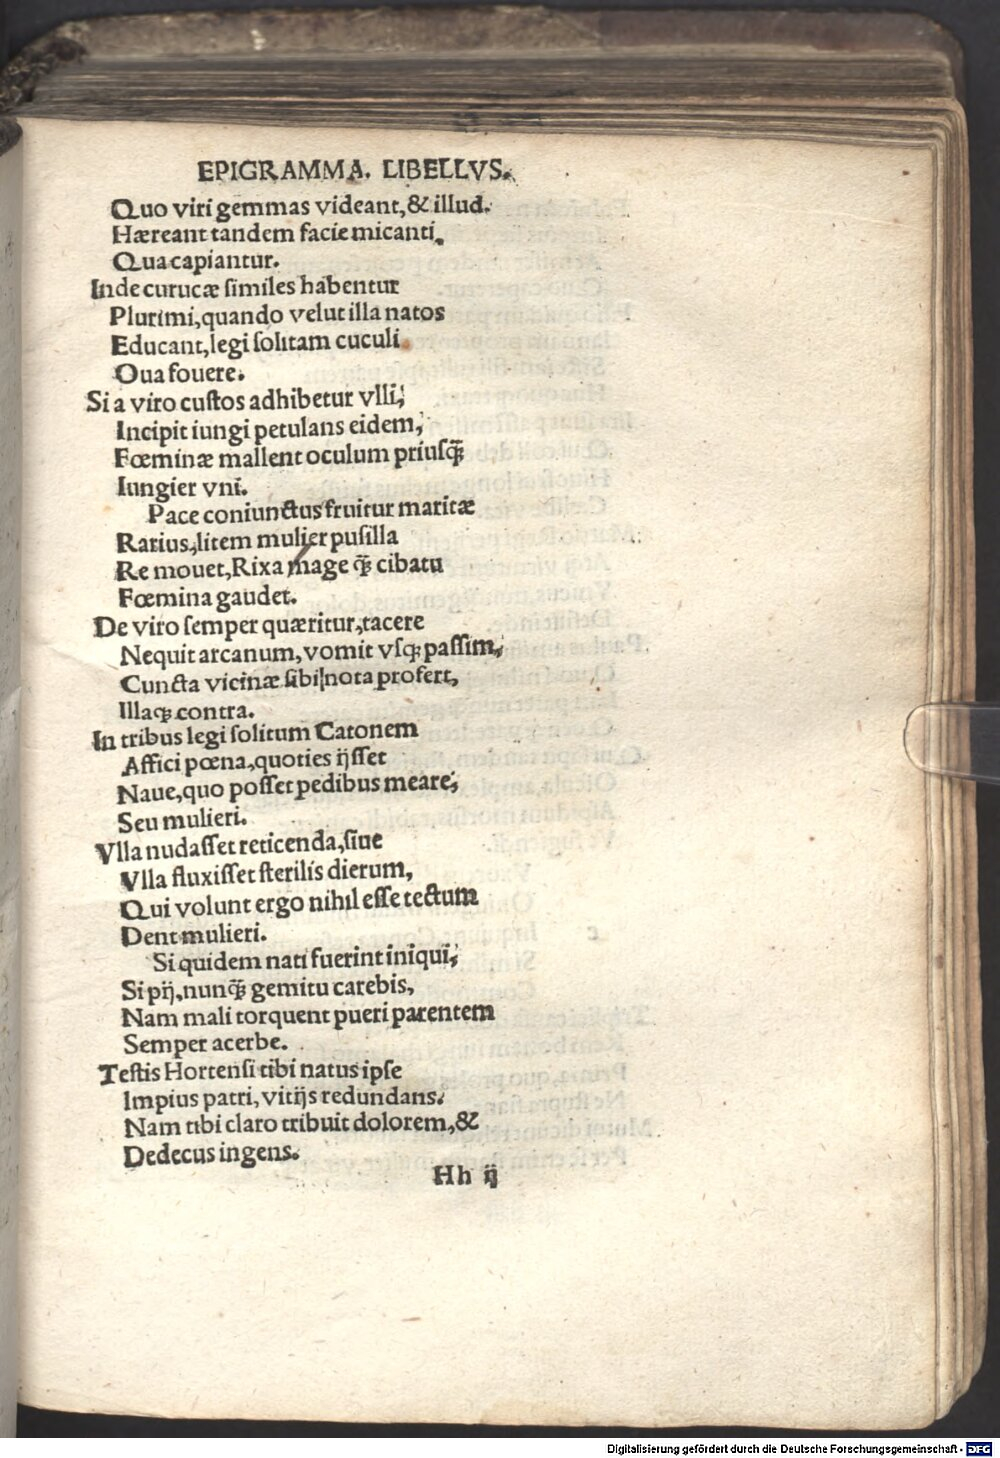 EPIGRAMMA. LIBELLVS.
Quo viri gemmas videant,& illud.
Hæreant tandem facie micanti.
Qua capiantur.
Inde curucæ similes habentur
Plurimi,quando velut illa natos
Educant,legi solitam cuculi
Oua fouere.
Si a viro custos adhibetur vlli;
Incipit iungi petulans eidem;
Fœminæ mallent oculum priusq̃
Iungier vni.
Pace coniunctus fruitur maritæ
Rarius,litem mulier pusilla
Re mouet,Rixa mage q̃ cibatu
Fœmina gaudet.
De viro semper quæritur,tacere
Nequit arcanum,vomit vsq; passim;
Cuncta vicinæ sibi nota profert,
Illaq; contra.
In tribus legi solitum Catonem
Affici pœna,quoties ijsset
Naue,quo posset pedibus meare;
Seu mulieri.
Vlla nudasset reticenda,siue
Vlla fluxisset sterilis dierum,
Qui volunt ergo nihil esse tectum
Dent mulieri.
Si quidem nati fuerint iniqui;
Si pij,nunq̃ gemitu carebis,
Nam mali torquent pueri parentem
Semper acerbe.
Testis Hortensi tibi natus ipse
Impius patri,vitijs redundans.
Nam tibi claro tribuit dolorem,&
Dedecus ingens.
Hh ij
Digitalisierung gefördert durch die Deutsche Forschungsgemeinschaft - DFG